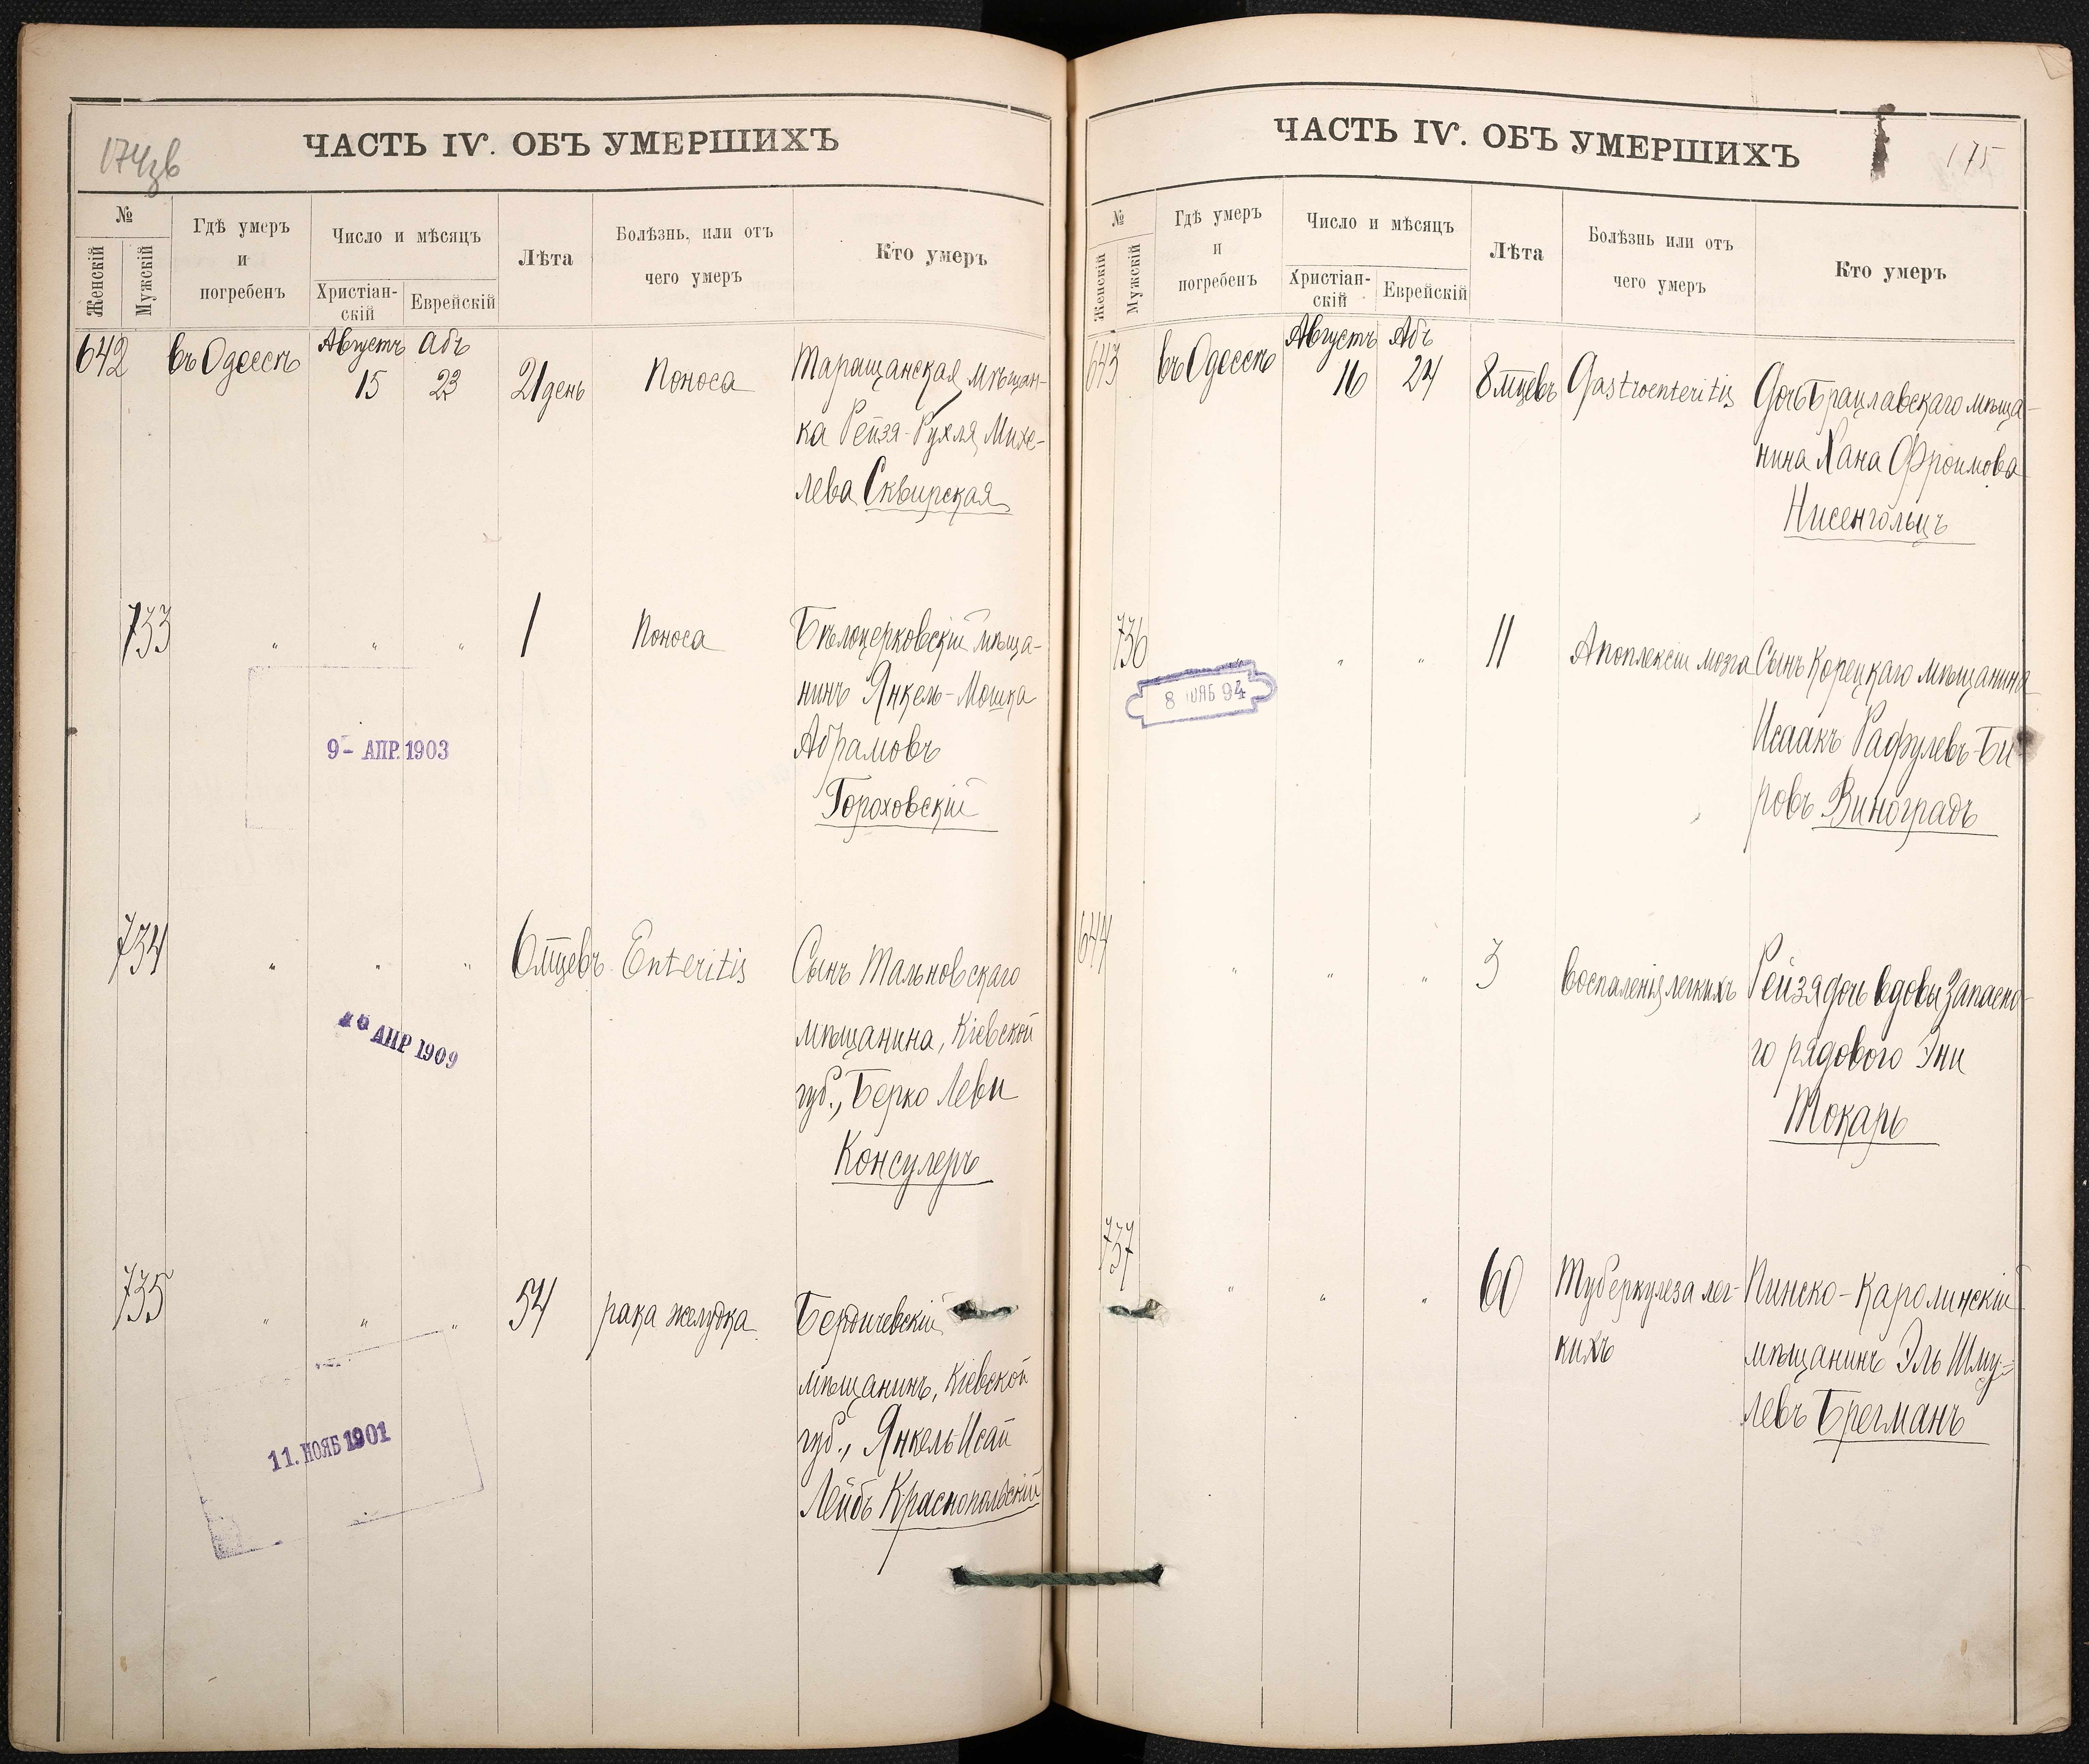 174зв
ЧАСТЬ IV. ОБЪ УМЕРШИХЪ
№
Женскій
Мужскій
Гдѣ умеръ
и
погребенъ
Число и мѣсяцъ
Христіан-
скій
Еврейскій
Лѣта
Болѣзнь, или отъ
чего умеръ
Кто умеръ
642
въ Одессѣ
Августъ
15
Абъ
23
21 день
Поноса
Таращанская мѣщан-
ка Рейзя-Рухля Михе-
лева Сквирская
733
"
"
"
1
Поноса
Бѣлоцерковскій мѣща-
нинъ Янкель-Мошка
Абрамовъ
Гороховскій
9- АПР. 1903
734
"
"
"
6 мцевъ
Enteritis
Сынъ Тальновскаго
мѣщанина, Кіевской
губ., Берко Леви
Консулеръ
АПР 1909
735
"
"
"
54
рака желудка
Бердичевскій
мѣщанинъ, Кіевской
губ., Янкель Исай
Лейбъ Краснопольскій
11. НОЯБ 1901
175
ЧАСТЬ IV. ОБЪ УМЕРШИХЪ
№
Женскій
Мужскій
Гдѣ умеръ
и
погребенъ
Число и мѣсяцъ
Христіан-
скій
Еврейскій
Лѣта
Болѣзнь или отъ
чего умеръ
Кто умеръ
643
въ Одессѣ
Августъ
16
Абъ
24
8 мцевъ
Gastroenteritis
Дочь Брацлавскаго мѣща-
нина Хана Фроимова
Нисенгольцъ
736
"
"
"
11
Апоплексіи мозга
Сынъ Корецкаго мѣщанина
Исаакъ Рафулевъ-Би-
ровъ Виноградъ
644
"
"
"
3
Воспаленія легкихъ
Рейзя дочь вдовы запасно-
го рядового Эни
Токарь
737
"
"
"
60
Туберкулеза лег-
кихъ
Пинско-Каролинскій
мѣщанинъ Эль Шму-
левъ Брегманъ